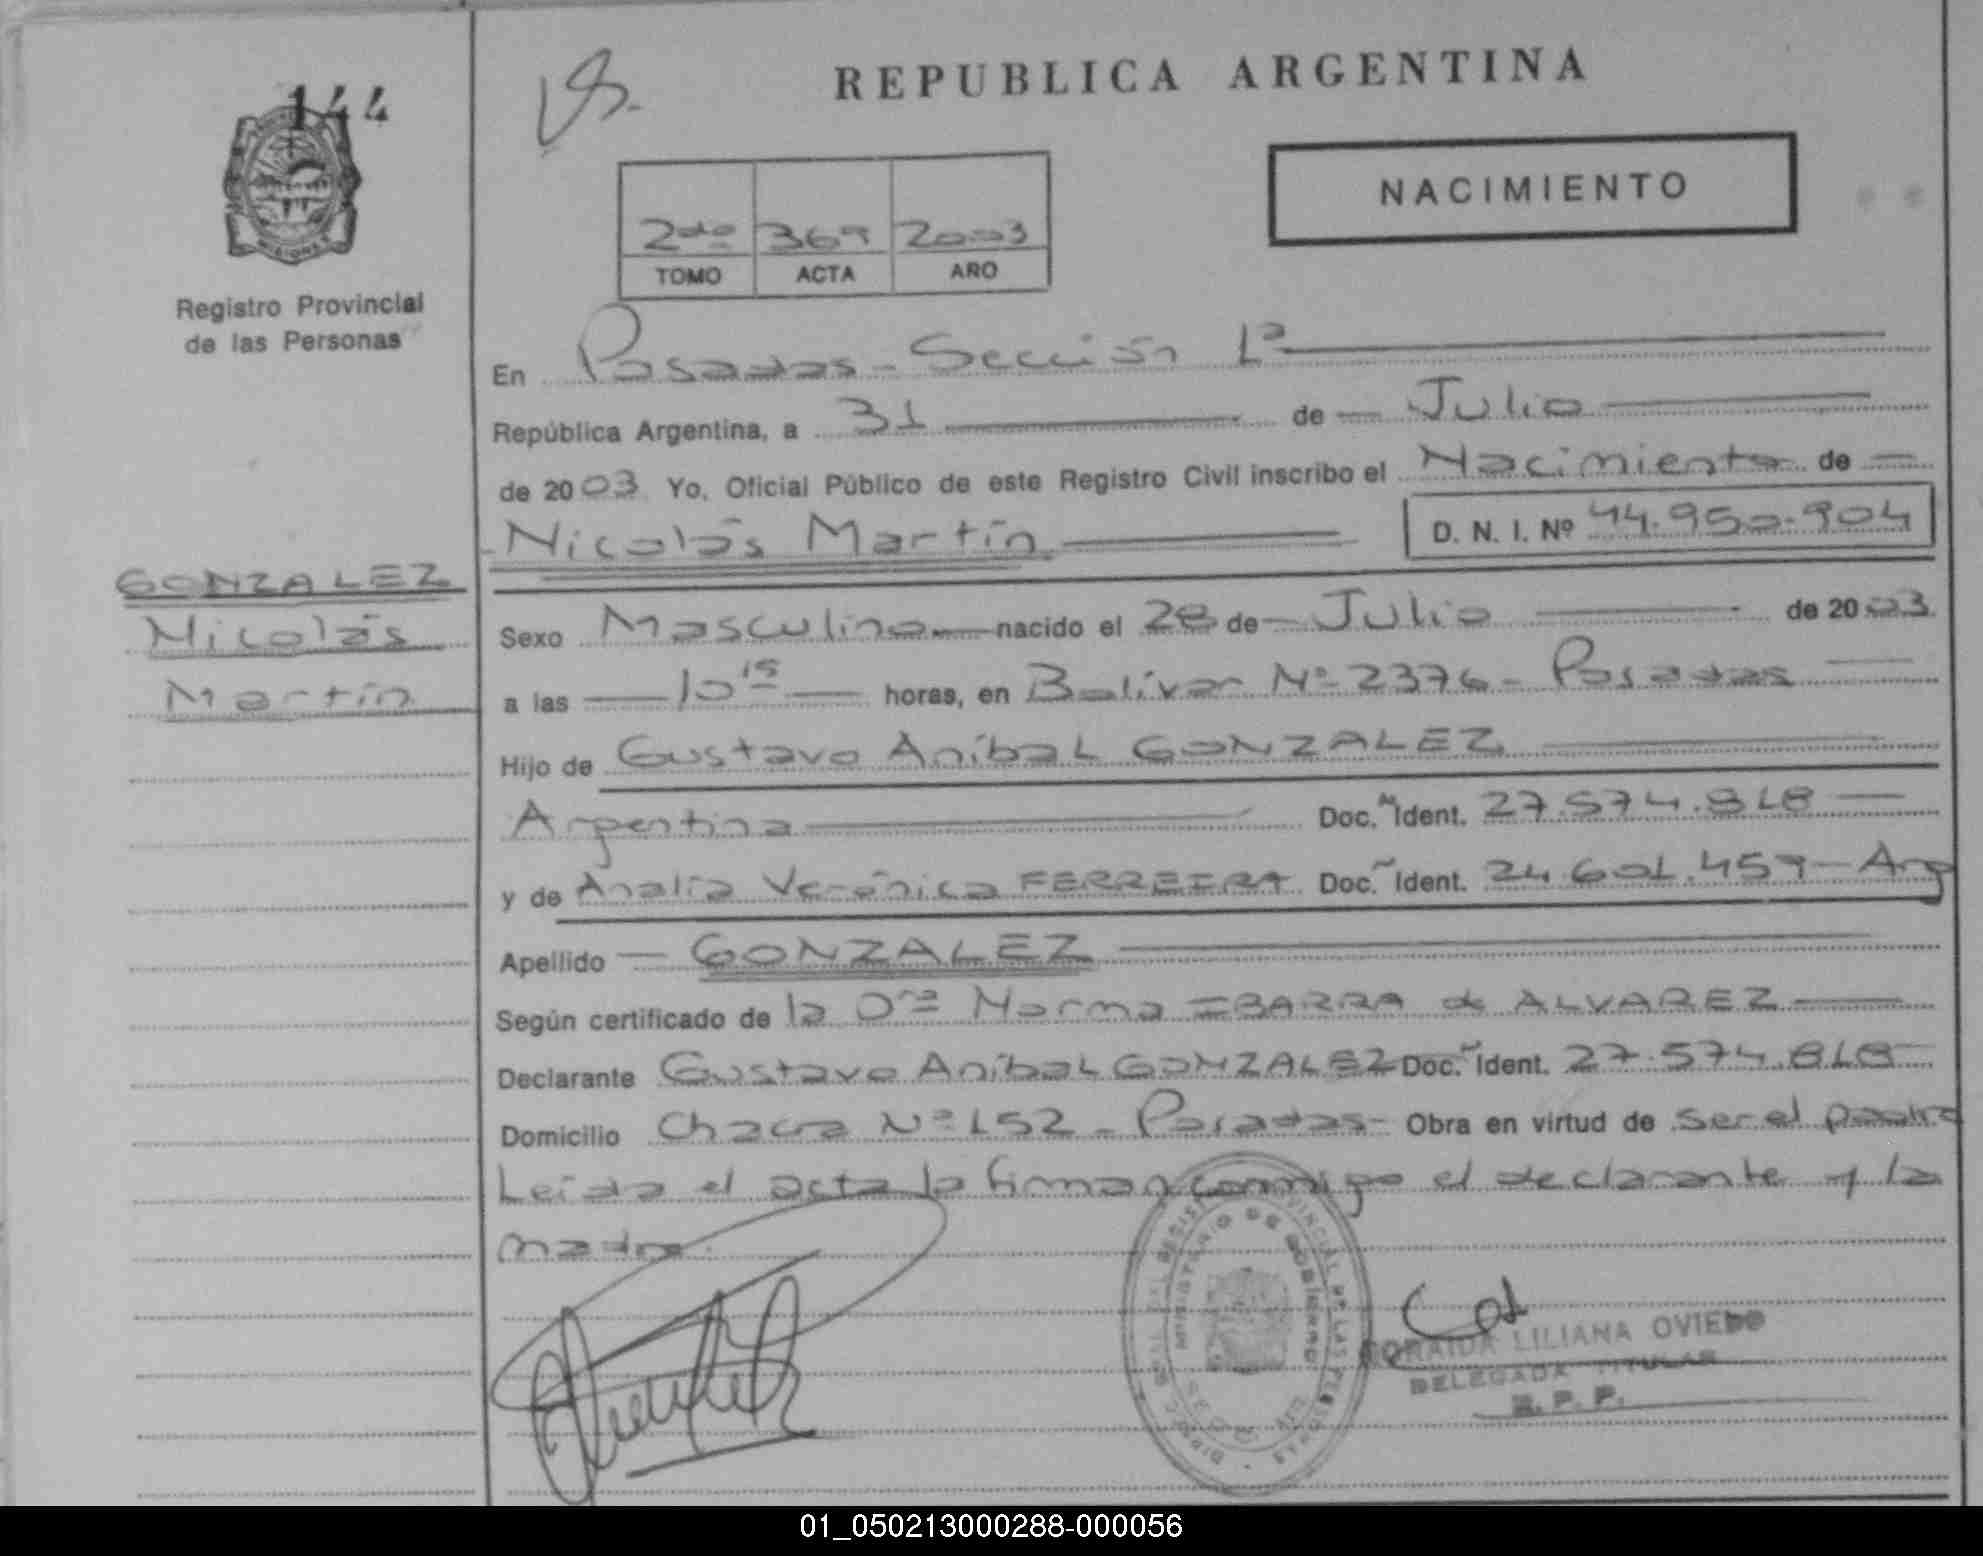 144
REPUBLICA ARGENTINA
NACIMIENTO
2do 369 2003
TOMO ACTA ARO
Registro Provincial
de las Personas
En Posadas - Sección 1ª
República Argentina, a 31 de Julio
de 2003 Yo, Oficial Público de este Registro Civil inscribo el Nacimiento de
Nicolás Martín D. N. I. Nº 44.950.904
GONZALEZ
Nicolás
Martín
Sexo Masculino nacido el 28 de Julio de 2003
a las 10 15 horas, en Bolívar Nº 2376 - Posadas
Hijo de Gustavo Aníbal GONZALEZ
Argentina Doc. Ident. 27.574.818
y de Analía Verónica FERREIRA Doc. Ident. 24.601.459 - Arg
Apellido GONZALEZ
Según certificado de la Dra Norma IBARRA de ALVAREZ
Declarante Gustavo Aníbal GONZALEZ Doc. Ident. 27.574.818
Domicilio Chacra Nº 152 - Posadas - Obra en virtud de ser el padre
Leida el acta la firman conmigo el declarante y la
madre.
MINISTERIO DE GOBIERNO
SORAIDA LILIANA OVIEDO
DELEGADA TITULAR
R. P. P.
01_050213000288-000056